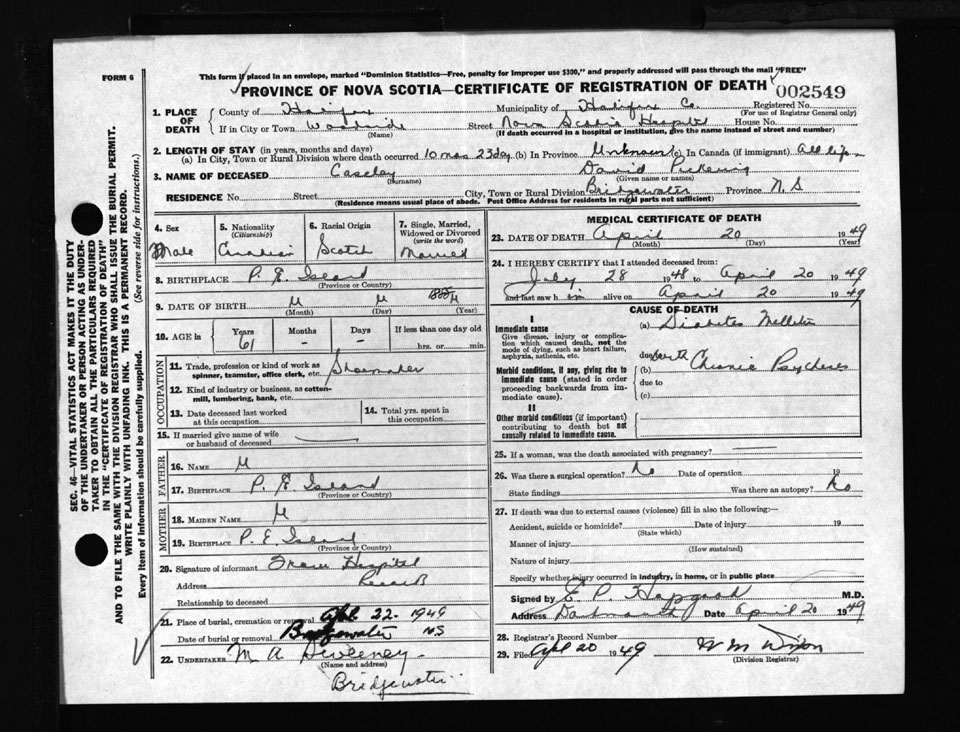 FORM 6
This form if placed in an envelope, marked "Dominion Statistics—Free, penalty for improper use $300," and properly addressed will pass through the mail "FREE"
PROVINCE OF NOVA SCOTIA—CERTIFICATE OF REGISTRATION OF DEATH 002549
1. PLACE OF DEATH
County of Halifax Municipality of Halifax Co. Registered No. (For use of Registrar General only)
If in City or Town Woodside (Name) Street Nova Scotia Hospital House No.
(If death occurred in a hospital or institution, give the name instead of street and number)
2. LENGTH OF STAY (in years, months and days)
(a) In City, Town or Rural Division where death occurred 10 mos 23 day (b) In Province Unknown (c) In Canada (if immigrant) All life
3. NAME OF DECEASED Caseley (Surname) David Pickering (Given name or names)
RESIDENCE No. Street City, Town or Rural Division Bridgewater Province N.S
(Residence means usual place of abode. Post Office Address for residents in rural parts not sufficient)
4. Sex Male
5. Nationality (Citizenship) Canadian
6. Racial Origin Scotch
7. Single, Married, Widowed or Divorced (write the word) Married
8. BIRTHPLACE P. E. Island (Province or Country)
9. DATE OF BIRTH U (Month) U (Day) U (Year)
10. AGE in Years 61 Months - Days - If less than one day old hrs. or min.
OCCUPATION
11. Trade, profession or kind of work as spinner, teamster, office clerk, etc. Shoemaker
12. Kind of industry or business, as cotton-mill, lumbering, bank, etc.
13. Date deceased last worked at this occupation
14. Total yrs. spent in this occupation
15. If married give name of wife or husband of deceased
FATHER
16. NAME U
17. BIRTHPLACE P. E. Island (Province or Country)
MOTHER
18. MAIDEN NAME U
19. BIRTHPLACE P. E. Island (Province or Country)
20. Signature of informant From Hospital
Address Record
Relationship to deceased
21. Place of burial, cremation or removal Apl 22- 1949
Date of burial or removal Bridgewater NS
22. UNDERTAKER M A Sweeney (Name and address)
Bridgewater
MEDICAL CERTIFICATE OF DEATH
23. DATE OF DEATH April (Month) 20 (Day) 1949 (Year)
24. I HEREBY CERTIFY that I attended deceased from:
July 28 1948 to April 20 1949
and last saw him alive on April 20 1949
CAUSE OF DEATH
I
Immediate cause
Give disease, injury or complication which caused death, not the mode of dying, such as heart failure, asphyxia, asthenia, etc.
(a) Diabetes Mellitus
due to with
Morbid conditions, if any, giving rise to immediate cause (stated in order proceeding backwards from immediate cause).
(b) Chronic Psychosis
due to
(c)
II
Other morbid conditions (if important) contributing to death but not causally related to immediate cause.
25. If a woman, was the death associated with pregnancy?
26. Was there a surgical operation? No Date of operation 19
State findings Was there an autopsy? No
27. If death was due to external causes (violence) fill in also the following:—
Accident, suicide or homicide? (State which) Date of injury 19
Manner of injury (How sustained)
Nature of injury
Specify whether injury occurred in industry, in home, or in public place
Signed by E. P. Hapgood M.D.
Address Dartmouth Date April 20 1949
28. Registrar's Record Number
29. Filed Apl 20 1949 W M Dixon (Division Registrar)
SEC. 46—VITAL STATISTICS ACT MAKES IT THE DUTY OF THE UNDERTAKER OR PERSON ACTING AS UNDERTAKER TO OBTAIN ALL THE PARTICULARS REQUIRED IN THE "CERTIFICATE OF REGISTRATION OF DEATH" AND TO FILE THE SAME WITH THE DIVISION REGISTRAR WHO SHALL ISSUE THE BURIAL PERMIT.
WRITE PLAINLY WITH UNFADING INK. THIS IS A PERMANENT RECORD.
Every item of information should be carefully supplied. (See reverse side for instructions.)